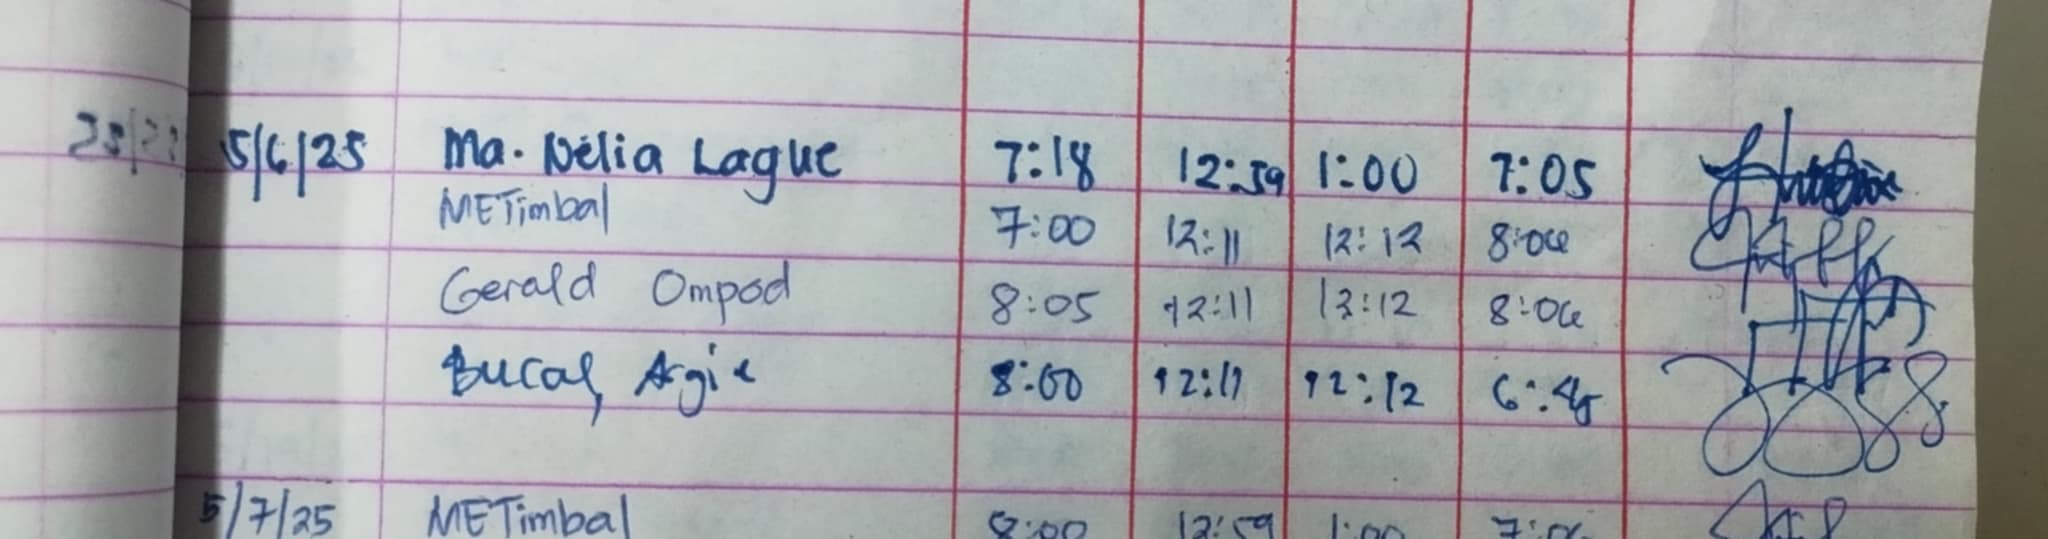 5/6/25 Ma. Nelia Lague 7:18 12:59 1:00 7:05
METimbal 7:00 12:11 12:12 8:06
Gerald Ompod 8:05 12:11 12:12 8:06
Bucal, Argie 8:00 12:11 12:12 6:45
5/7/25 METimbal 8:00 12:59 1:00